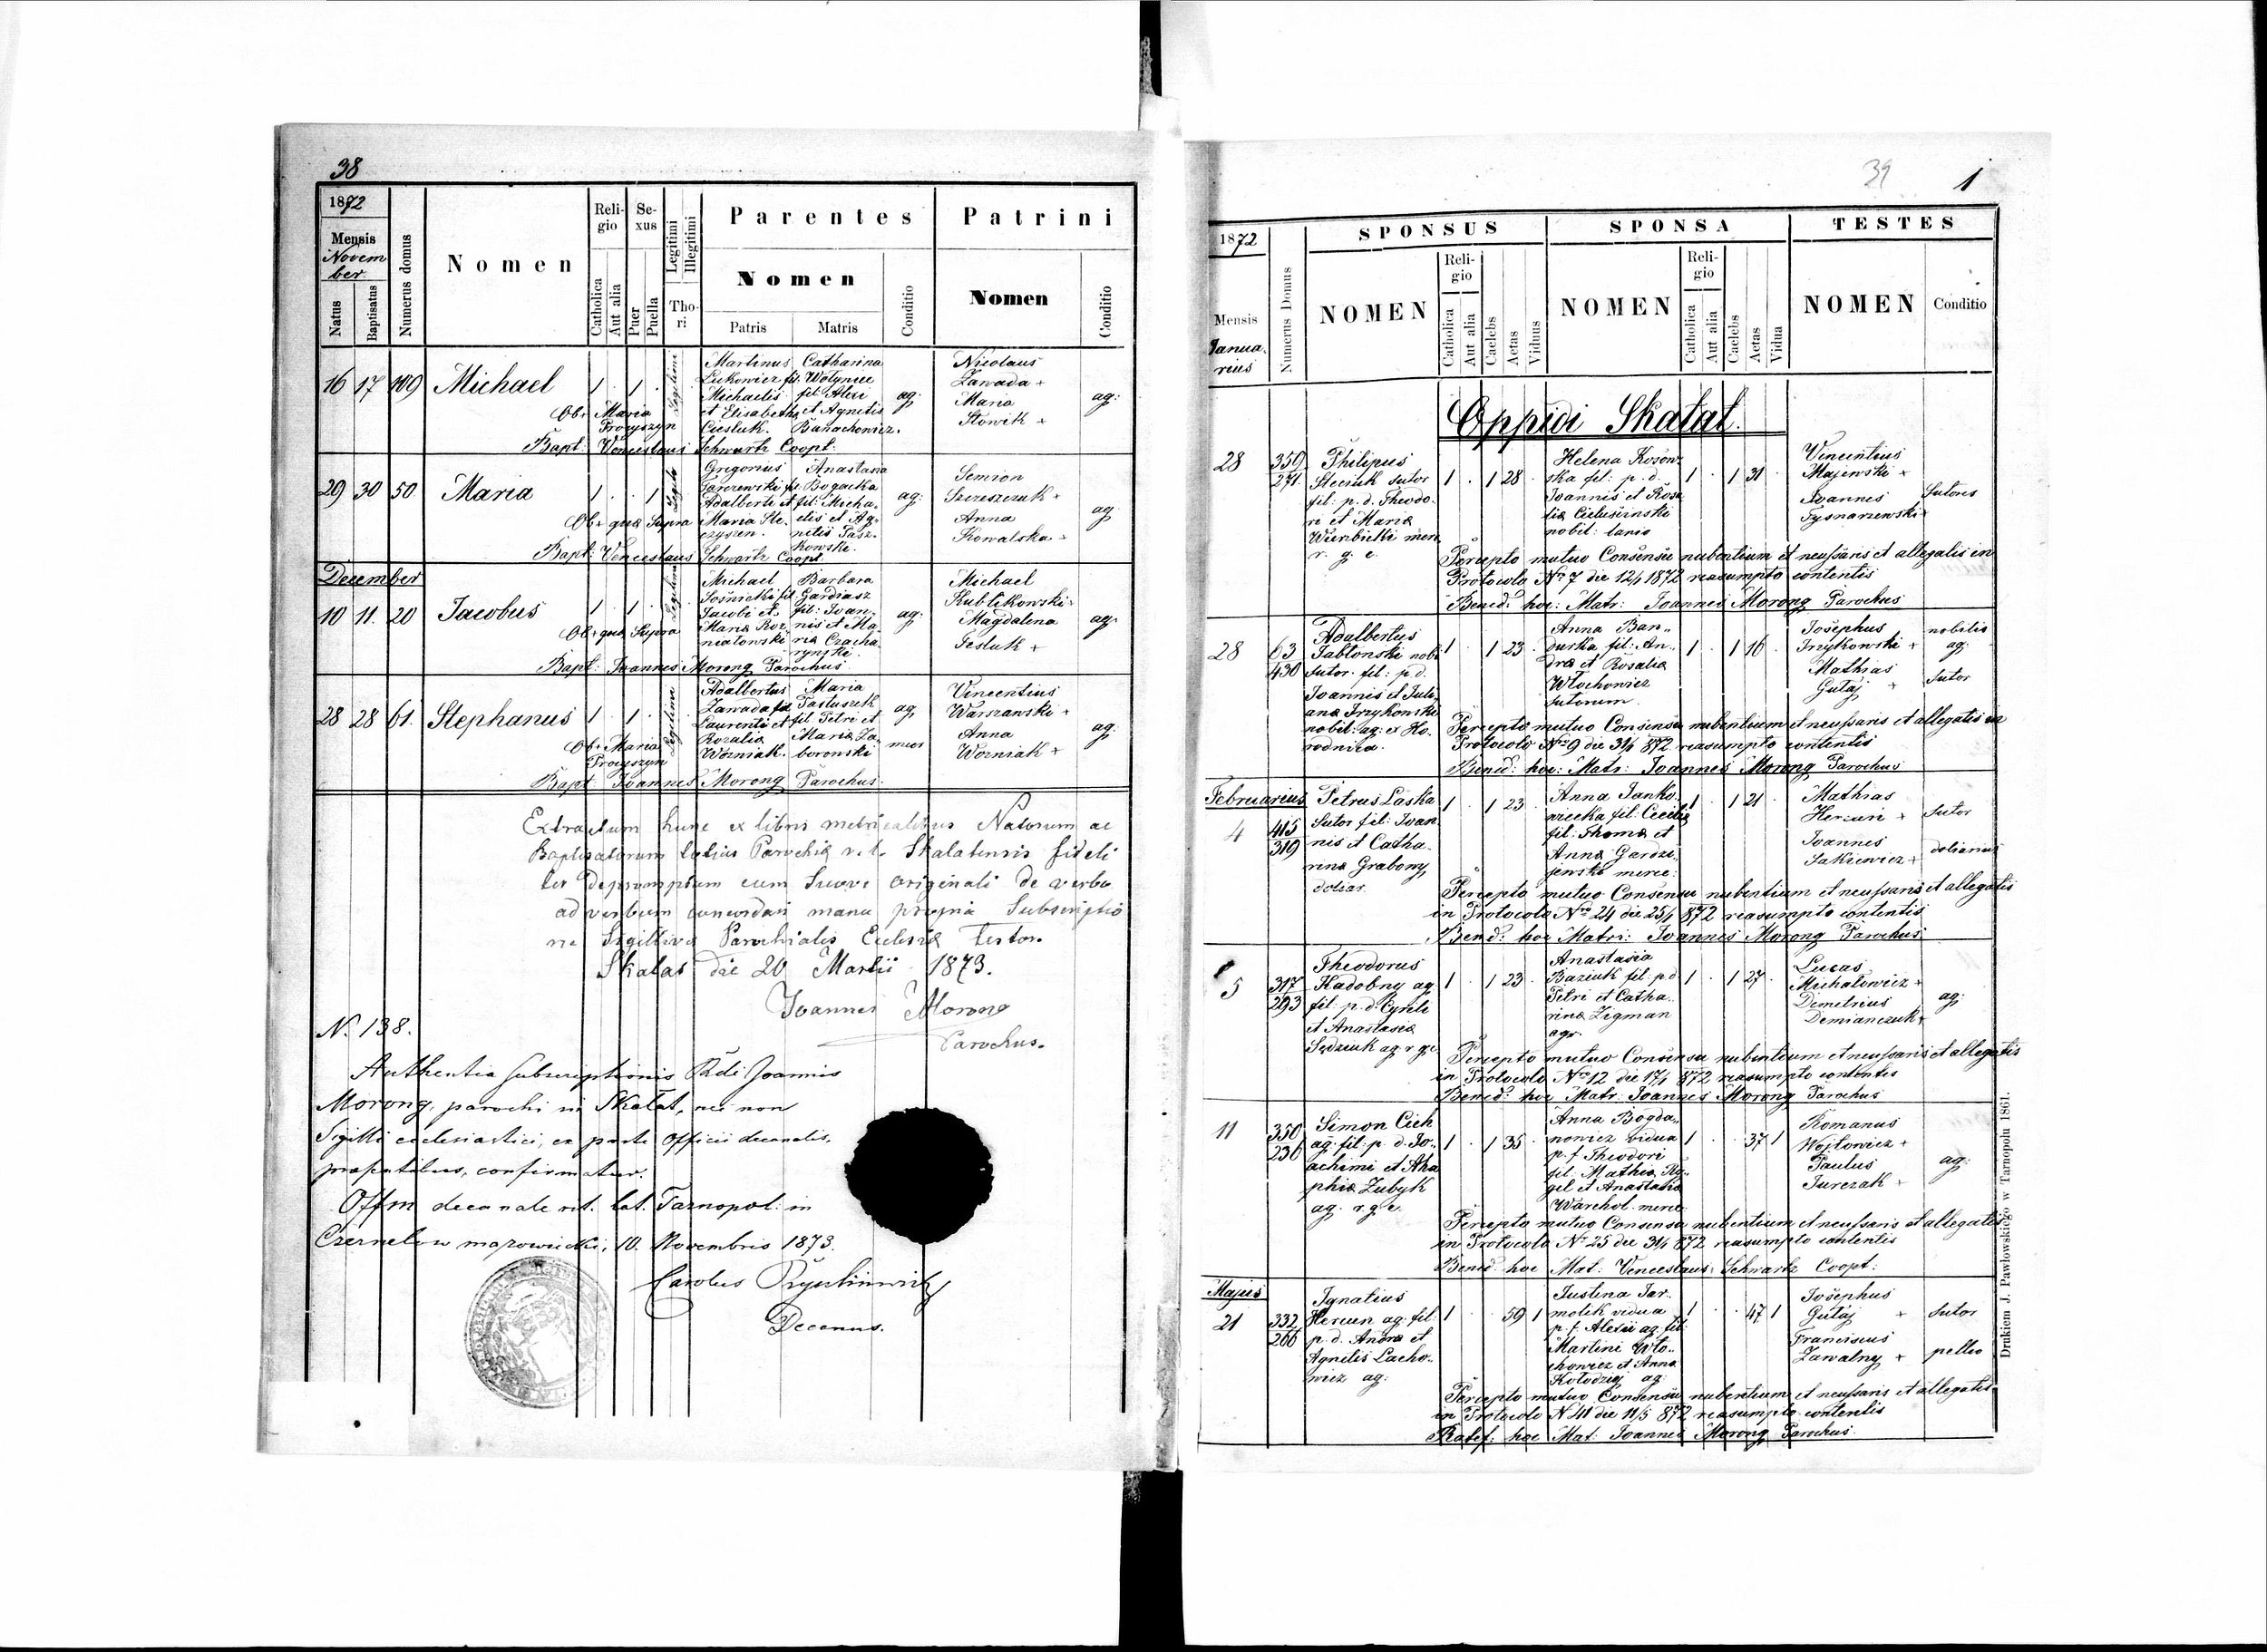 38
1872
Mensis
Novem
ber
Natus
Baptisatus
Numerus domus
Nomen
Reli-
gio
Catholica
Aut alia
Se-
xus
Puer
Puella
Legitimi
Illegitimi
Tho-
ri
Parentes
Nomen
Patris
Matris
Conditio
Patrini
Nomen
Conditio
16 17 109 Michael 1 . 1 .
Martinus Catharina
Lukowicz fil. Wołyniec
Michaelis fil Alexi
et Elisabetha et Agnetis
Ciesluk. Banachowicz.
ag:
Nicolaus
Zawada +
Maria
Słowik +
ag:
Obs Maria
Procyszyn
Bapt: Venceslaus Schwartz Coopt.
29 30 50 Maria 1 . . 1
Gregorius Anastasia
fil Bogacka
Adalberti et fil: Micha-
Maria Ste- elis et Ag-
czyszen. netis Pasz-
kowski.
ag:
Semion
Szereszczuk +
Anna
Kowalska +
ag
Obs quæ Supra
Bapt: Venceslaus Schwartz Coopt.
December
10 11. 20 Jacobus 1 . 1 .
Michael Barbara
Sośnicki fil Gardiasz
Jacobi et fil: Joan-
Maria Roz- nis et Ma-
niatowski ria
ag:
Michael
Kublikowski +
Magdalena
Tesluk +
ag.
Obs quæ Supra
Bapt: Joannes Morong Parochus
28 28 61. Stephanus 1 . 1 .
Adalbertus Maria
Zawada fil Pastuszek
Laurentii et fil Petri et
Rozalia Maria Za-
Woźniak. boronski
ag
Vincentius
Warszawski +
Anna
Wozniak +
ag:
Obs Maria
Procyszyn
Bapt: Joannes Morong Parochus.
Extractum hunc ex libris metricalibus Natorum ac
Baptisatorum Latius Parochiæ r. l. Skalatensis fideli
ter depromptum cum Suove originali de verbo
ad verbum concordari manu propria Subscriptio
ne Sigillive Parochialis Eclesiæ Testor.
Skałat die 20 Martii 1873.
Joannes Morong
Parochus.
N. 138.
Authentia Subscriptionis Rdi Joannis
Morong, parochi in Skałat, nec non
Sigilli ecclesiastici, ex parte Officii decanalis,
præsentibus, confirmatur.
Offm decanale rit. lat. Tarnopol: in
Czernelow mazowiecki, 10. Novembris 1873.
Carolus
Decanus.
39
1
1872
Mensis
Janua-
rius
Numerus Domus
SPONSUS
NOMEN
Reli-
gio
Catholica
Aut alia
Caelebs
Aetas
Viduus
SPONSA
NOMEN
Reli-
gio
Catholica
Aut alia
Caelebs
Aetas
Vidua
TESTES
NOMEN
Conditio
Oppidi Skałat.
28
359
271.
Philipus
Steciuk Sutor
fil: p. d. Theodo-
ri et Maria
Wierzbicki
r. g. c.
1 . 1 28 .
Helena Kosow-
ska fil: p. d.
Joannis et Rosa
lia
nobil: lanio
1 . 1 31 .
Vincentius
Majewski +
Joannes
Tysnarzewski +
Sutores
Percepto mutuo Consensu nubentium et necessariis et allegatis in
Protocolo No 7 die 12/1 1872 reasumpto contentis
Bened: hoc: Matr: Joannes Morong Parochus
28
63
430
Adalbertus
Jabłonski nobi
Sutor. fil: p. d.
Joannis et Juli
ana Irzykowski
nobil: ag: ex Ho-
rodnica.
1 . 1 23 .
Anna Ban-
durka fil: An-
dræ et Rosalia
Włochowicz
Sutorum.
1 . 1 16 .
Josephus
Irzykowski +
Mathias
Gutaj +
nobilis
ag:
Sutor
Percepto mutuo Consensu nubentium et necessariis et allegatis in
Protocolo No 9 die 31/1 872 reasumpto contentis
Bened: hoc: Matr: Joannes Morong Parochus
Februarius
4
415
319
Petrus Laska
Sutor fil: Joan-
nis et Catha-
rina Grabony
doliar.
1 . 1 23 .
Anna Janko-
wiecka fil: Cecilia
fil: Thoma et
Anna
1 . 1 21 .
Mathias
Hercun +
Joannes
Sakiewicz +
Sutor
doliarius
Percepto mutuo Consensu nubentium et necessariis et allegatis
in Protocolo No 24 die 25/1 872 reasumpto contentis
Bened: hoc Matri: Joannes Morong Parochus
5
317
293
Theodorus
Kadobny ag
fil: p. d. Cyrili
et Anastasia
Sędziuk ag r g c
1 . 1 23 .
Anastasia
Baziuk fil: p d
Petri et Catha-
rina Zigman
agr.
1 . 1 27 .
Lucas
Michalewicz +
Demetrius
Demianczuk +
ag:
Percepto mutuo Consensu nubentium et necessariis et allegatis
in Protocolo No 12 die 17/1 872 reasumpto contentis
Bened: hoc Matr: Joannes Morong Parochus
11
350
236
Simon Cich
ag: fil: p. d. Jo-
achimi et Aha
phia Zubyk
ag. r. g. c.
1 . 1 35 .
Anna Bogda-
nowicz vidua
p. f Theodori
fil: Mathia Ry-
gel et Anastasia
Warchol.
1 . . 37 1
Romanus
Wojtowicz +
Paulus
Jurczak +
ag:
Percepto mutuo Consensu nubentium et necessariis et allegatis
in Protocolo No 25 die 31/1 872 reasumpto contentis
Bened: hoc Mat: Venceslaus Schwartz Coopt:
Majus
21
332
266
Ignatius
Hercun ag: fil:
p. d. Andræ et
Agnetis Lacho-
wicz ag:
1 . . 59 1
Justina Jar-
molik vidua
p. f Alexii ag. fil:
Martini Wło-
chowicz et Anna
Kołodziej ag:
1 . . 47 1
Josephus
Gutaj +
Franciscus
Zawalny +
Sutor
pellio
Percepto mutuo Consensu nubentium et necessariis et allegatis
in Protocolo N 41 die 11/5 872 reasumpto contentis
Ratif: hoc Mat: Joannes Morong Parochus
Drukiem J. Pawłowskiego w Tarnopolu 1861.